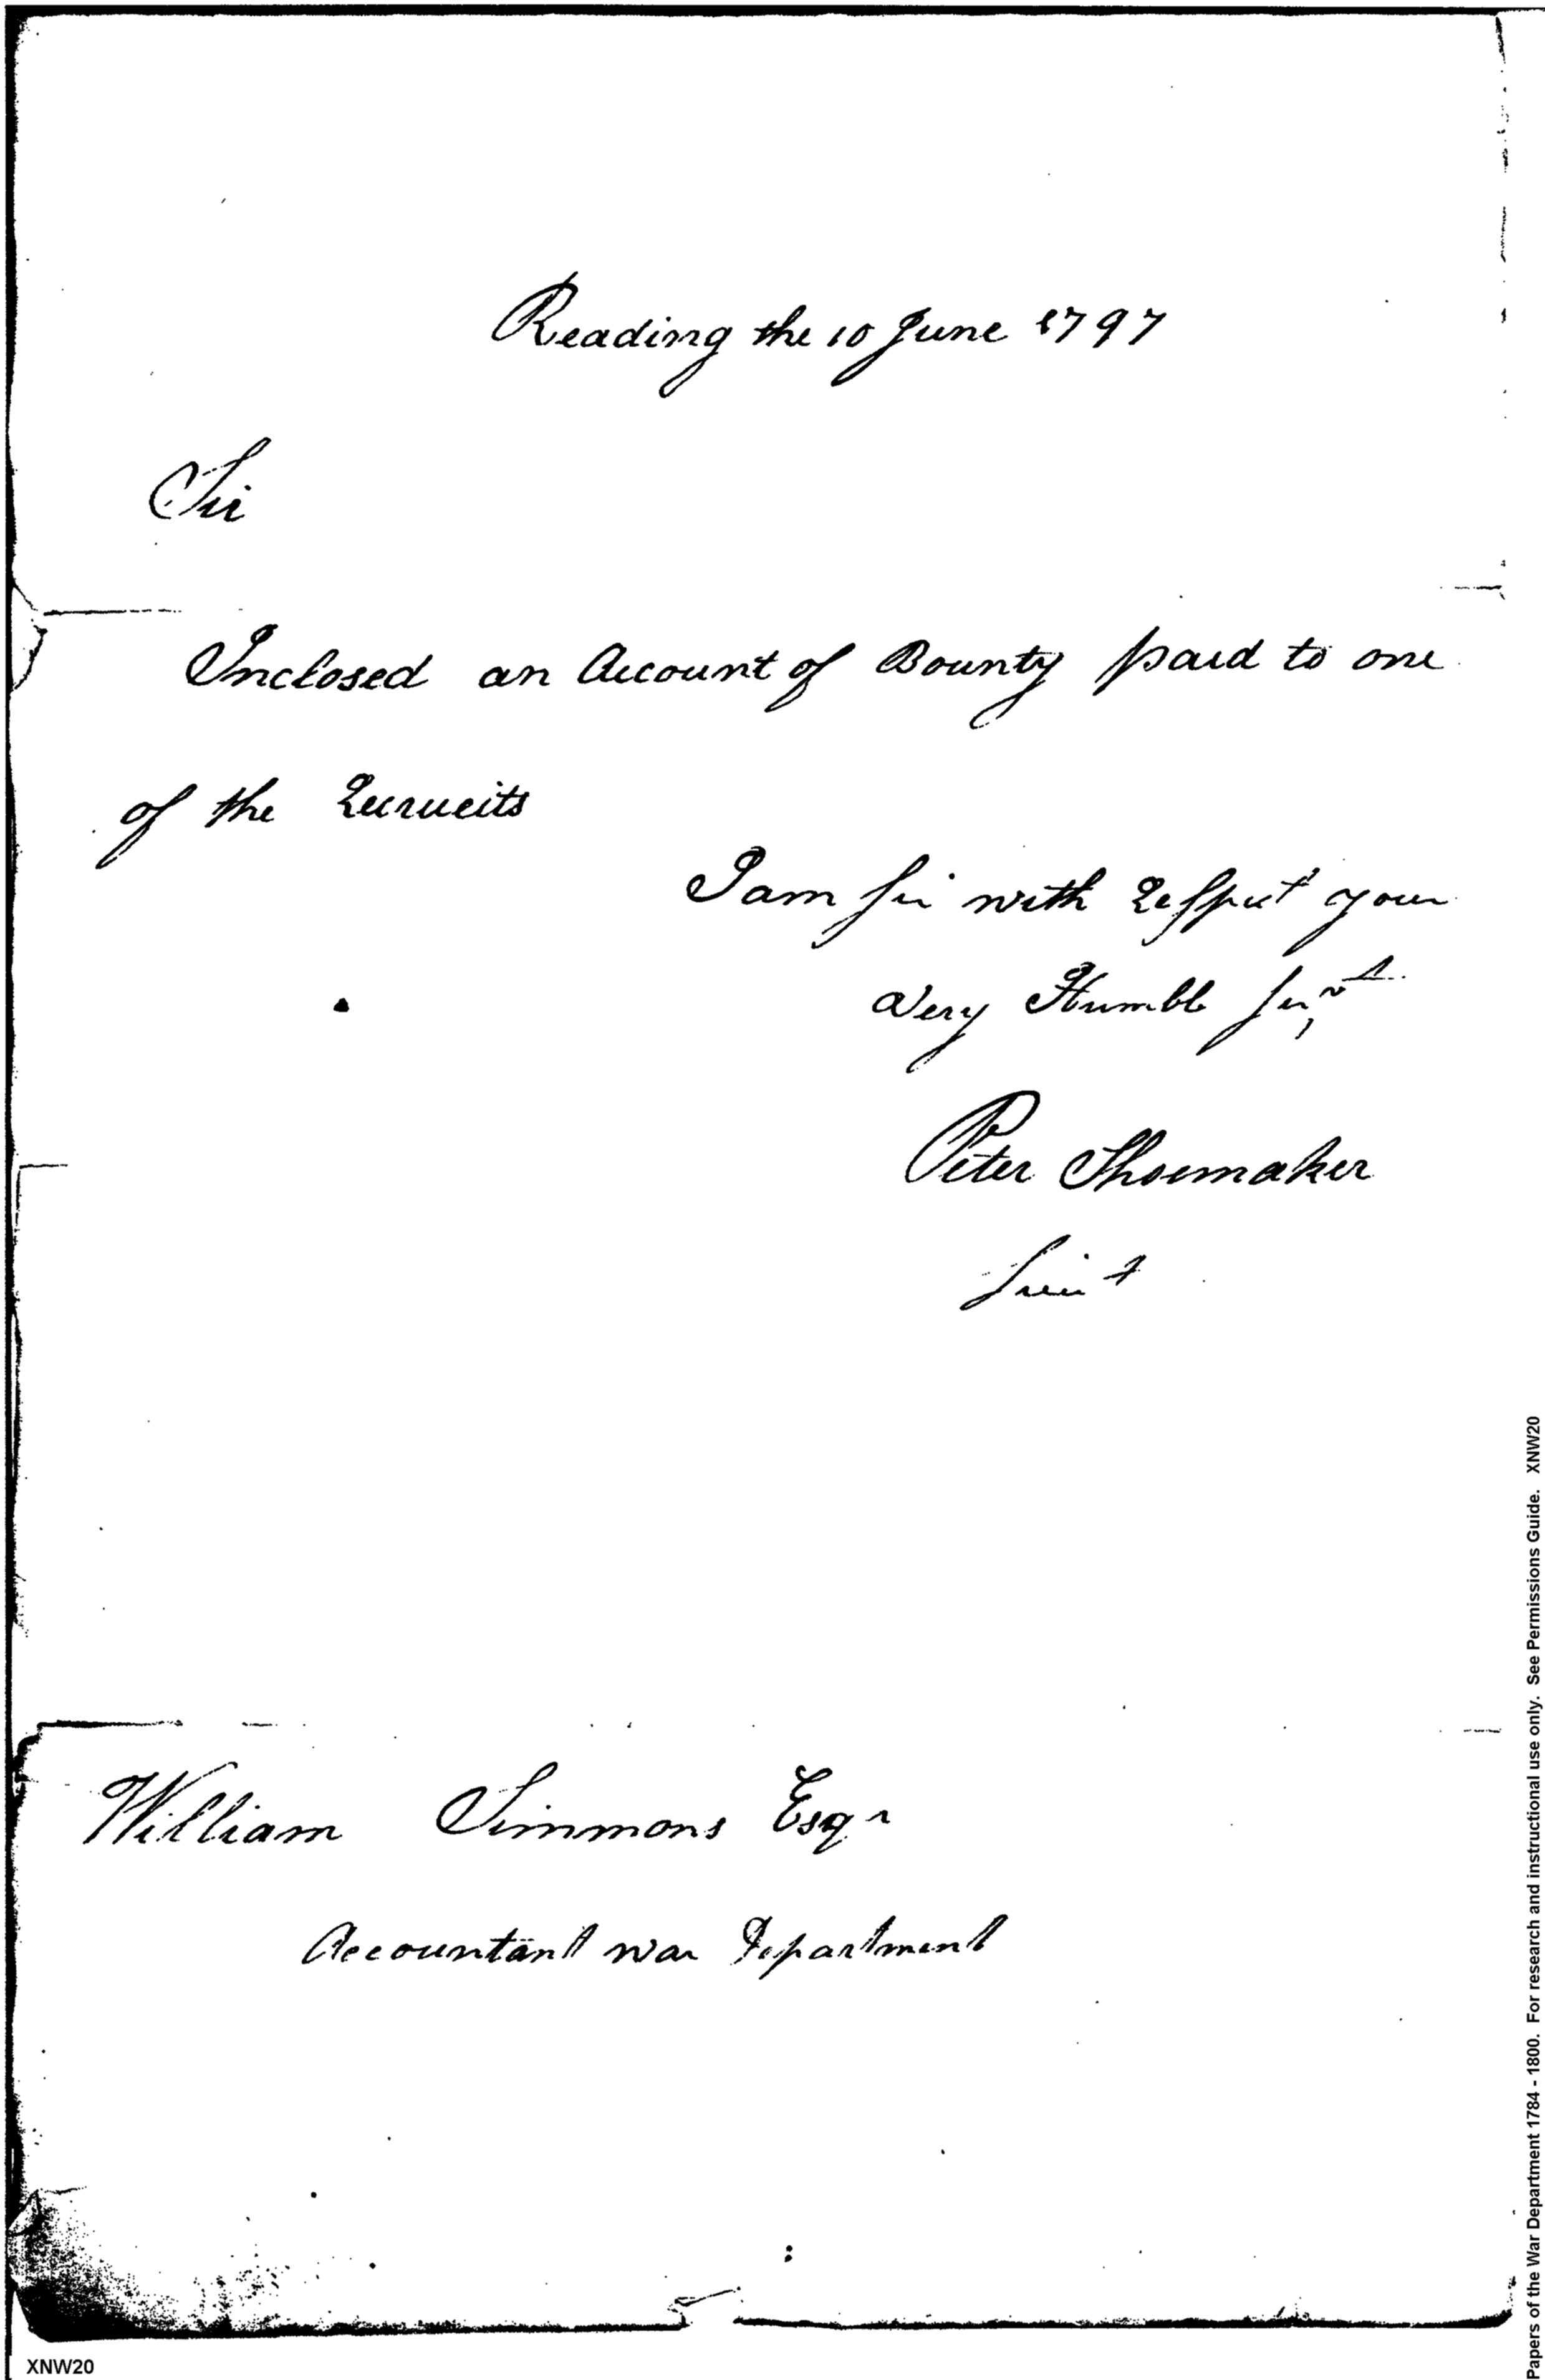 Reading the 10 June 1797
Sir
Inclosed an Account of Bounty paid to one
of the Recrueits
I am Sir with Respect your
Very Humble Servt
Peter Shoemaker
Lieut
William Simmons Esqr
Accountant war Department
XNW20
Papers of the War Department 1784 - 1800. For research and instructional use only. See Permissions Guide. XNW20